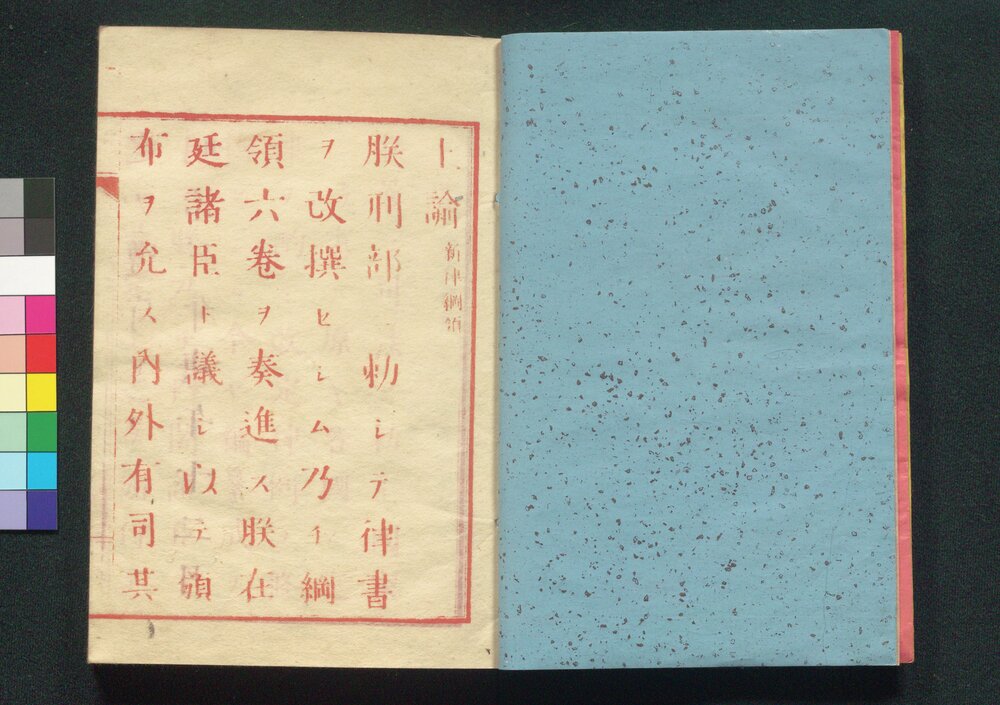 上諭 新律綱領
朕刑部 ニ勅シテ律書
ヲ改撰セシム乃イ綱
領六巻ヲ奏進ス朕在
廷諸臣ト議シ以テ頒
布ヲ允ス內外有司其